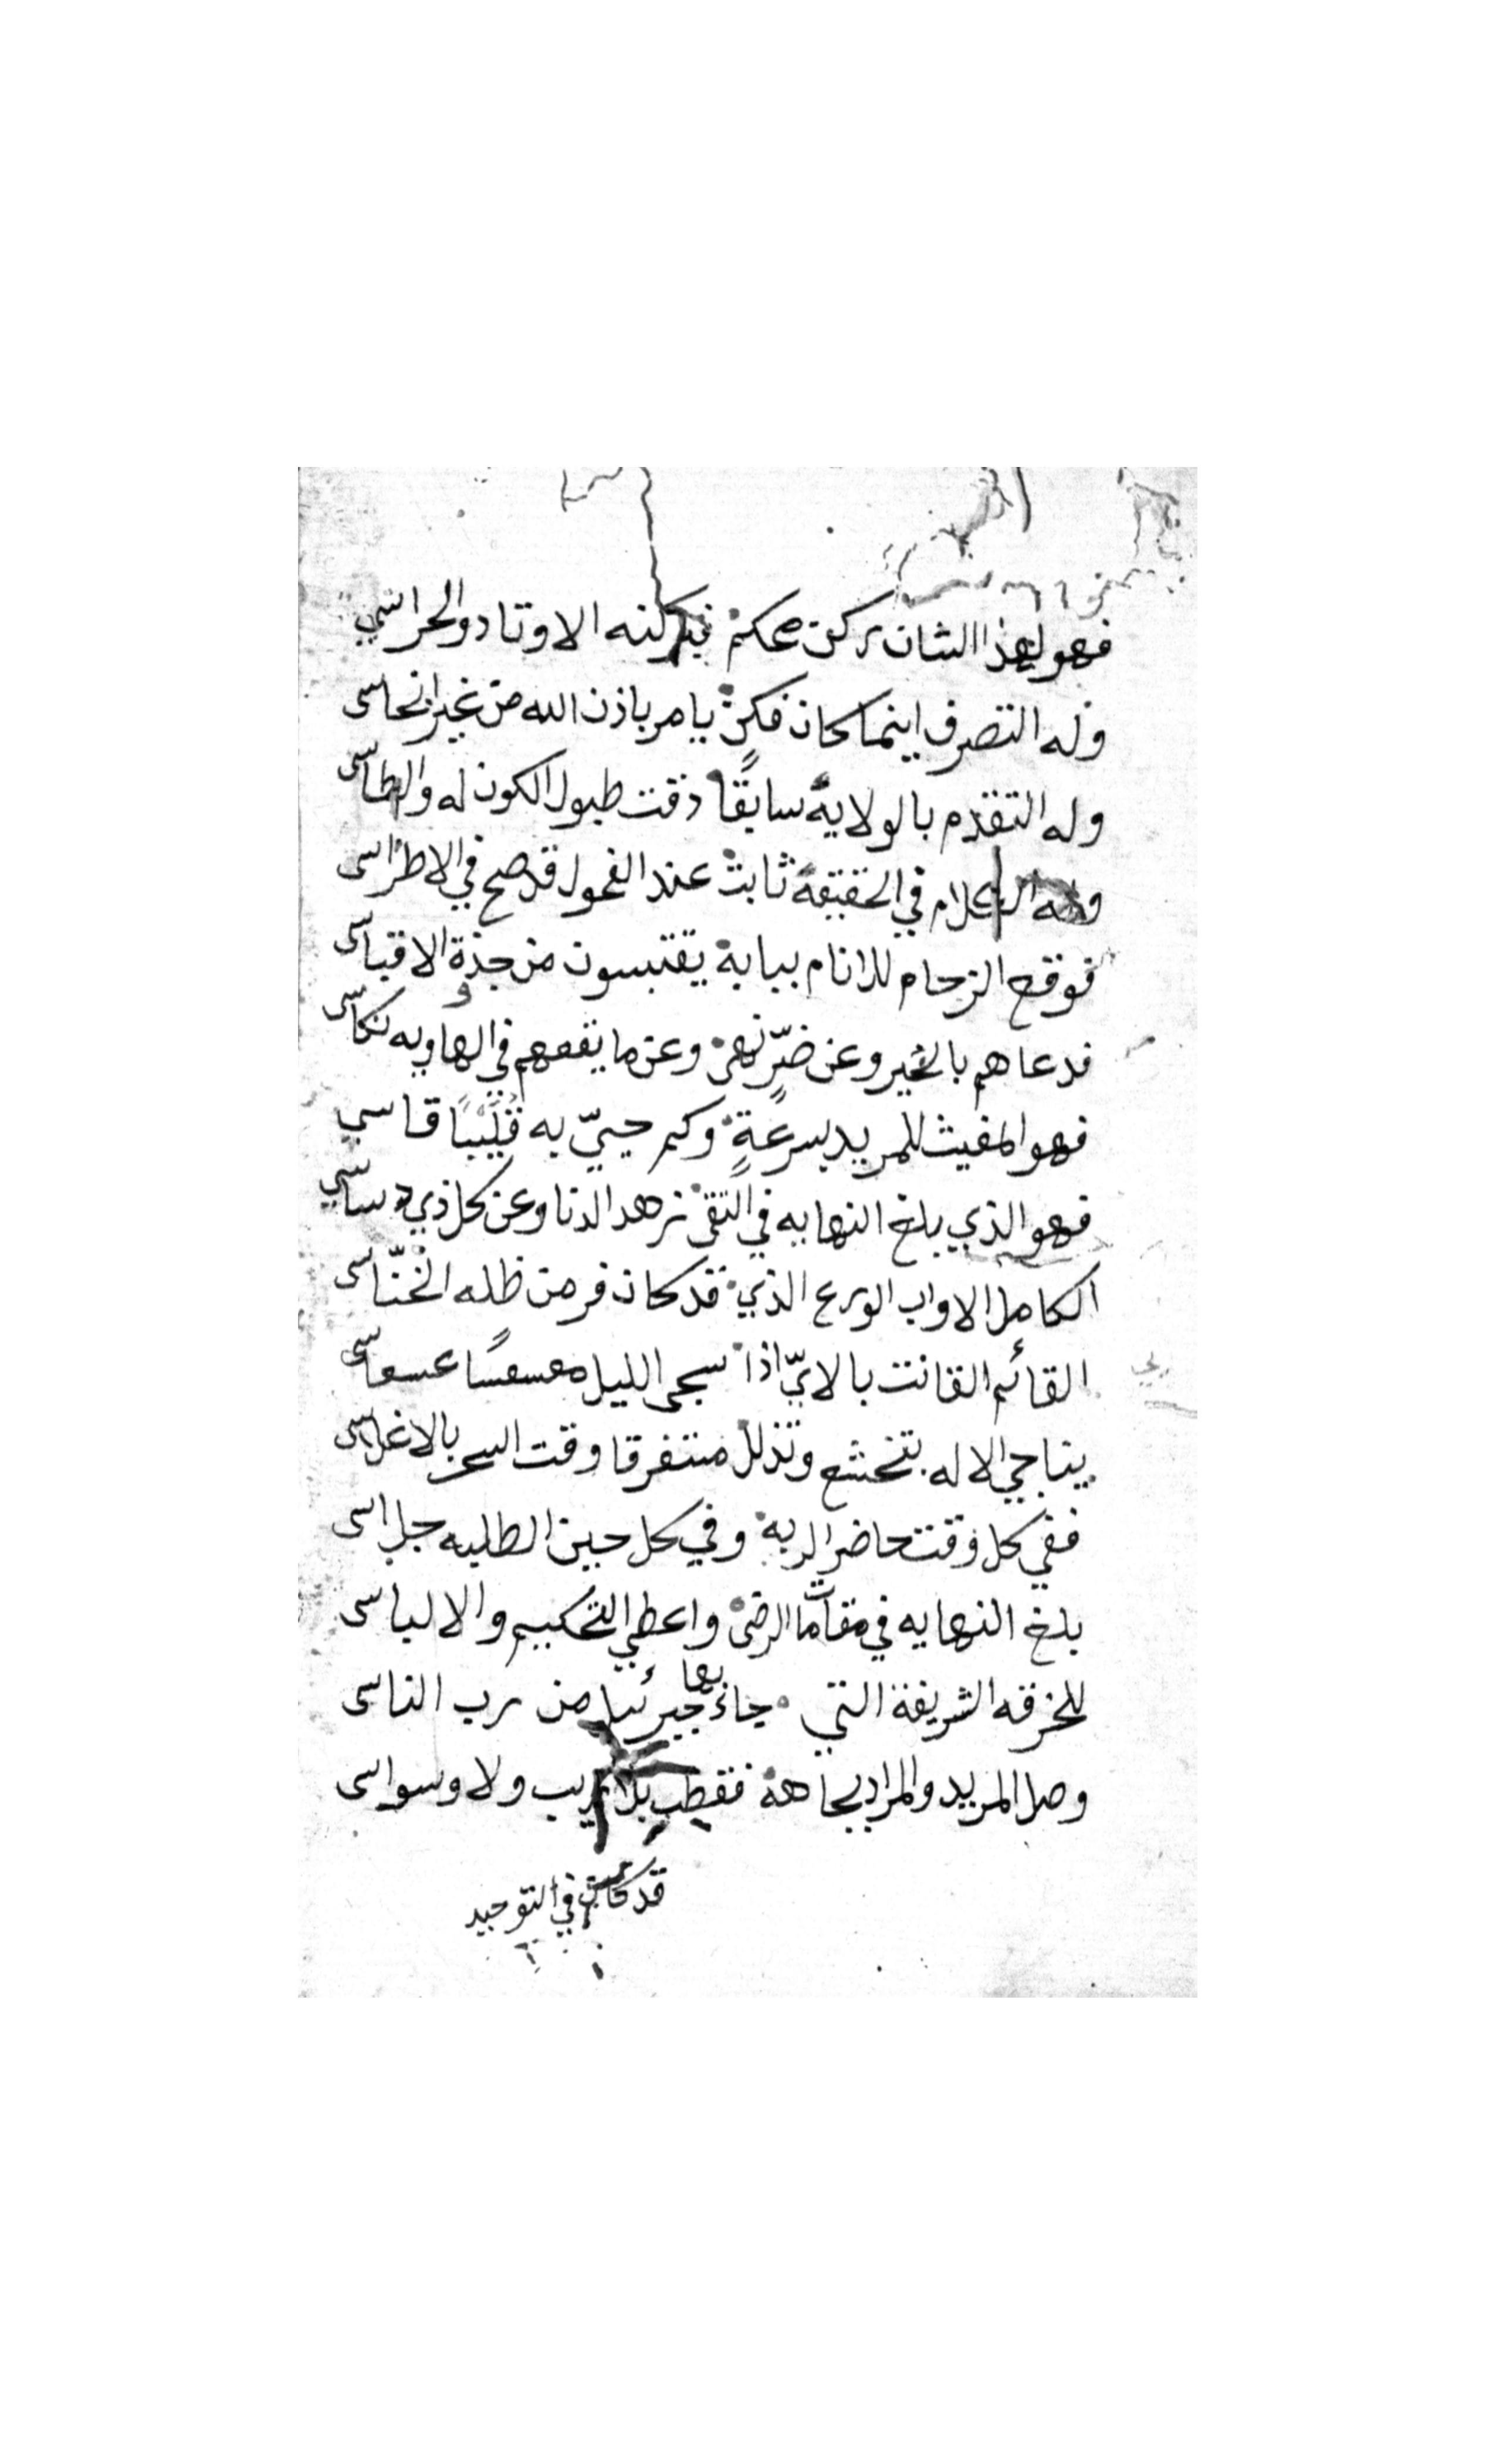 فهو لهذا الشان ركن محكم فبركنه الاوتاد والحراسي
وله التصرف اينما كان فكن يامر باذن الله من غير انحاسى
وله التقدم بالولاية سابقًا دقت طبول الكون له والطاسى
وله الكلام في الحقيقة ثابت عند الفحول قد صح في الاطراسى
فوقع الزحام للانام ببابه يقتبسون من جذوة الاقباسى
فدعاهم بالخير وعن ضرٍّ نهى وعن ما يقعهم في الهاويه نكاسى
فهو المغيث للمريد بسرعةٍ وكم حييّ به قُلَيْبًا قاسي
فهو الذي بلغ النهايه في التقى زهد الدنا وعن كل ذي دساسي
الكامل الاواب الورع الذي قد كان فر من ظله الخنّاسى
القائم القانت بالايّ اذا سجى الليل معسعسًا عسعاسى
يناجي الاله بتخشع وتذلل متفرقا وقت السحر بالاغلاسى
ففي كل وقت حاضر لربه وفي كل حين لطلبه جلاسى
بلغ النهايه في مقامات الرضى واعطي التحكيم والالباسى
للخرقه الشريفة التي جاء بها جبرئيل من رب الناسى
وصل المريد والمراد بجاهه فقطب بلا ريب ولا وسواسى
قد كان في التوحيد